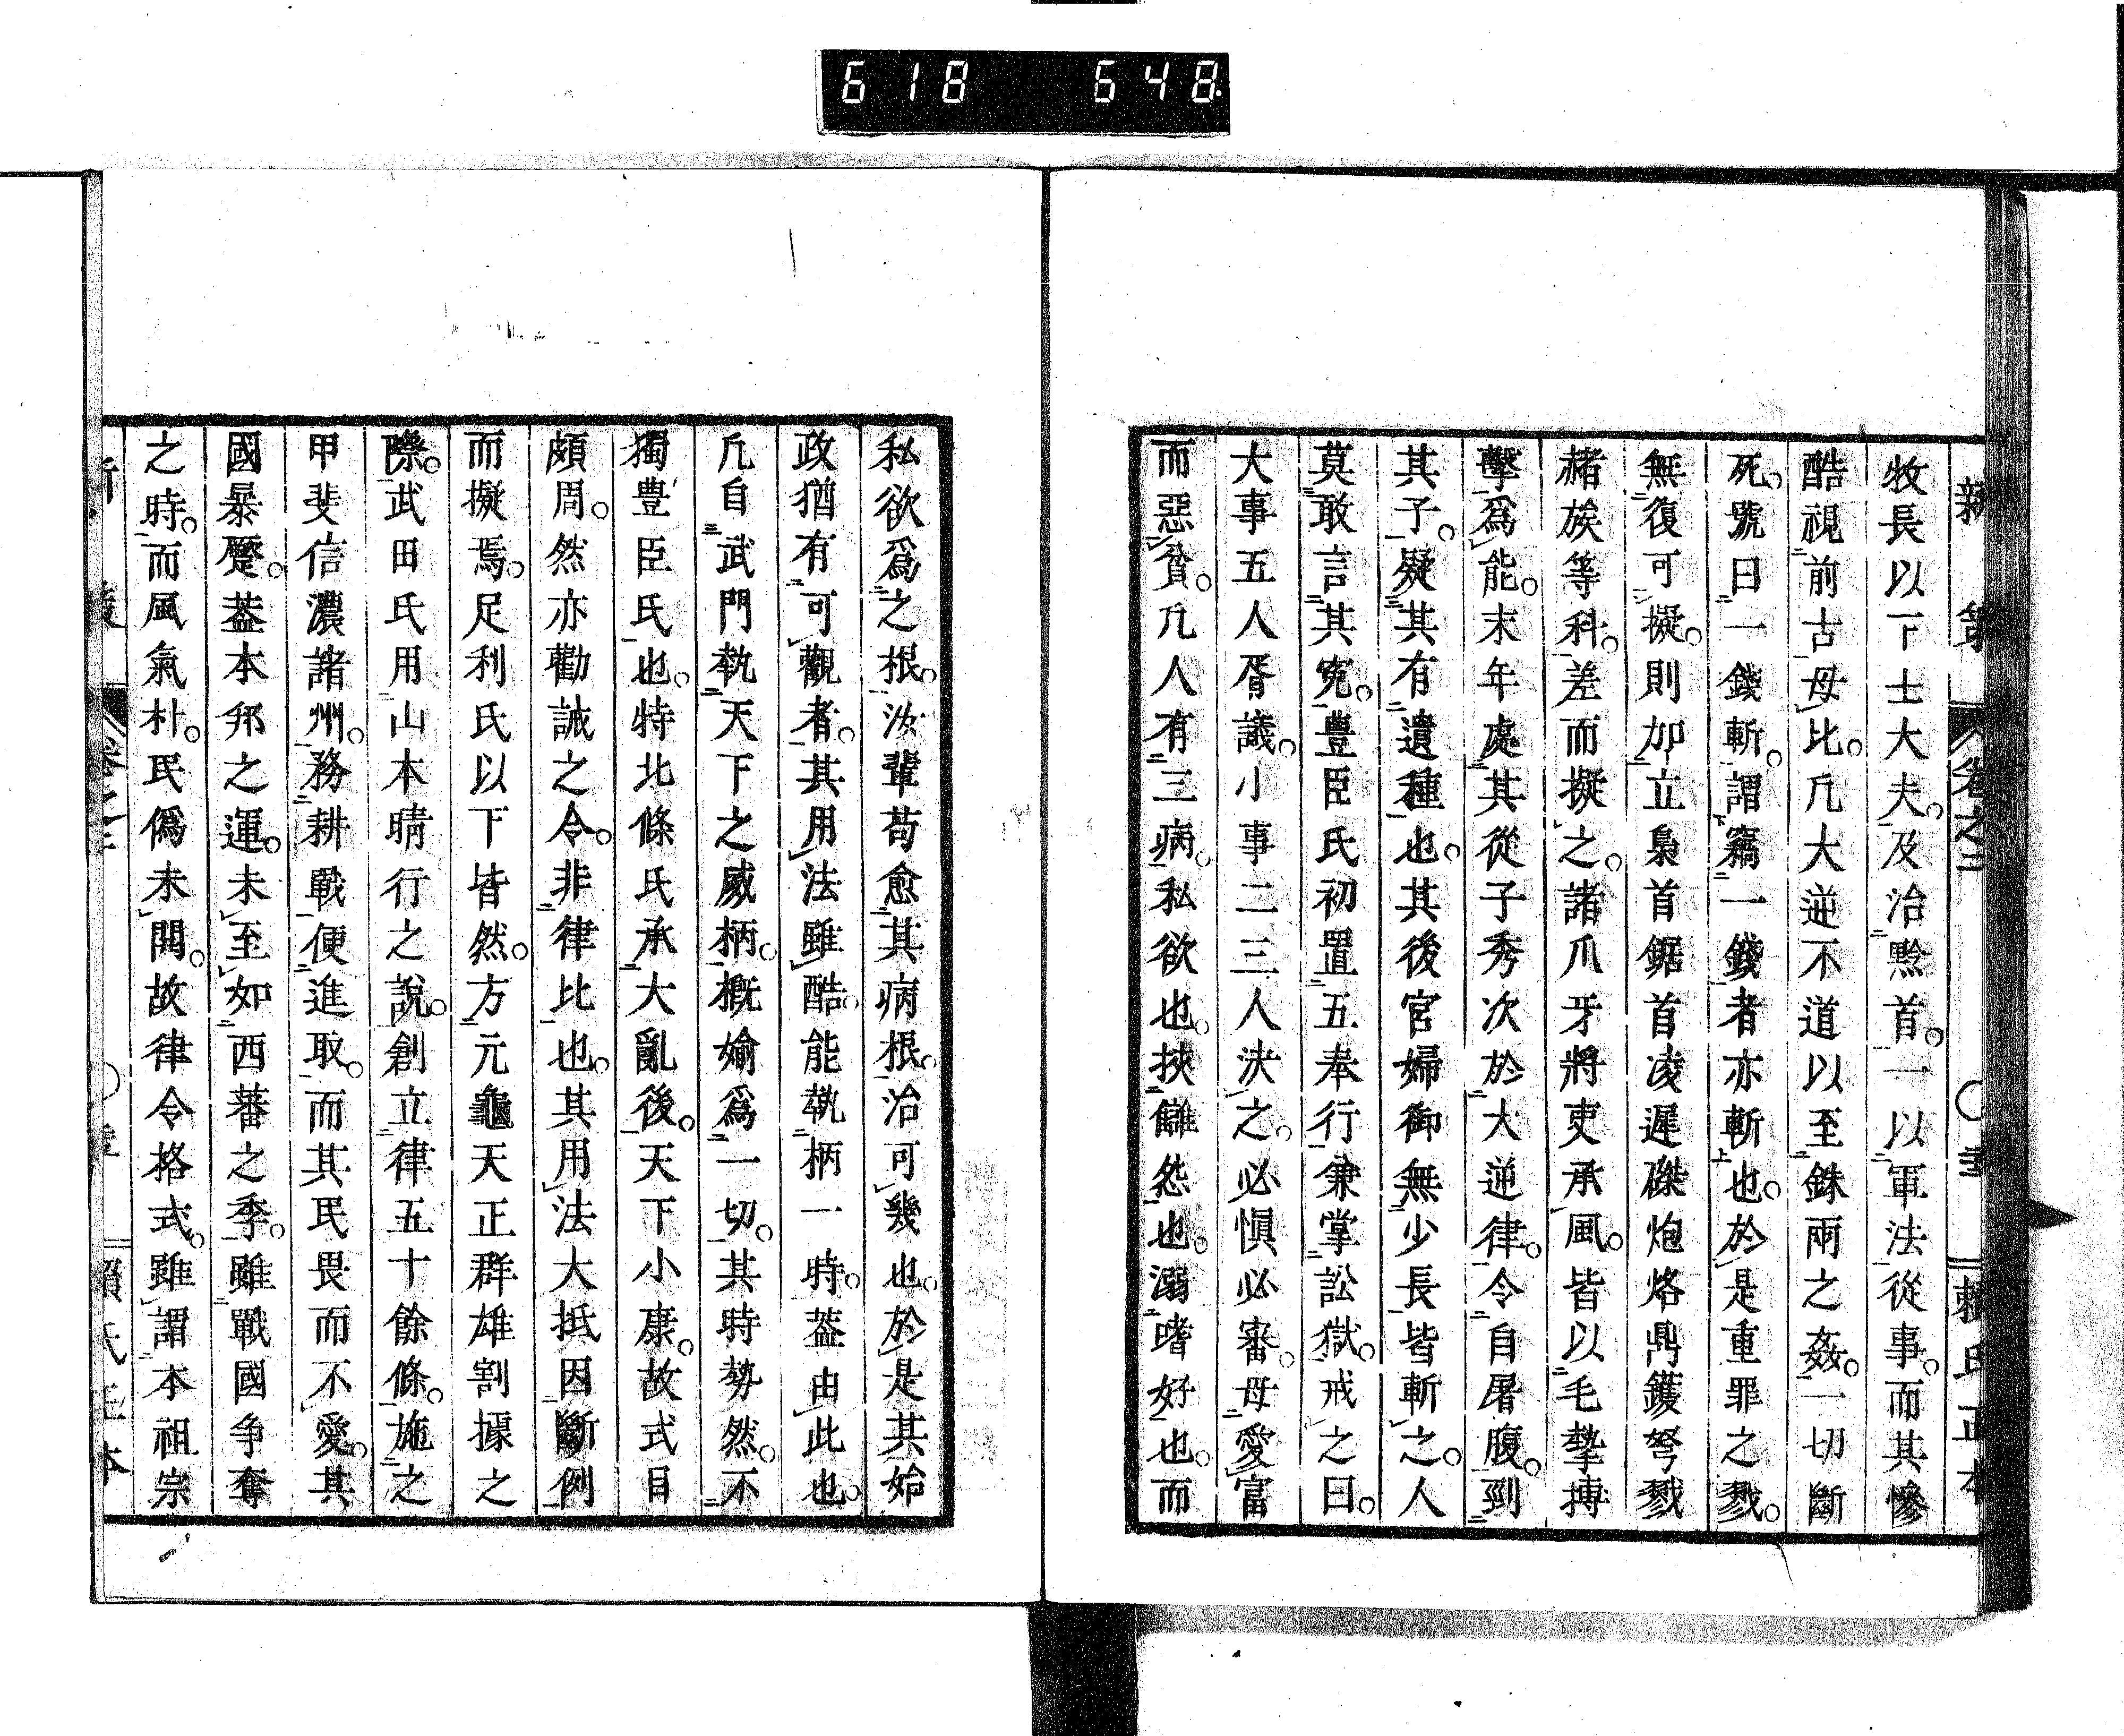 618 648
新策 卷之二 賴氏正本
牧長以下士大夫。及治黔首。一以軍法從事。而其慘
酷視前古毋比。凡大逆不道以至銖兩之姦。一切斷
死。號曰一錢斬。謂竊一錢者亦斬也。於是重罪之戮。
無復可擬。則加立梟首鋸首凌遲磔炮烙鼎鑊孥戮
赭族等科。差而擬之。諸爪牙將吏承風。皆以毛摯搏
擊爲能。末年處其從子秀次於大逆律。令自屠腹。剄
其子。疑其有遺種也。其後宮婦御無少長皆斬之。人
莫敢言其寃。豊臣氏初置五奉行兼掌訟獄。戒之曰。
大事五人胥議。小事二三人決之。必愼必審。毋愛富
而惡貧。凡人有三病。私欲也。挾讎怨也。溺嗜好也。而
私欲爲之根。汝輩苟愈其病根。治可幾也。於是其始
政猶有可觀者。其用法雖酷。能執柄一時。蓋由此也。
凢自武門執天下之威柄。槪媮爲一切。其時勢然。不
獨豊臣氏也。特北條氏承大亂後。天下小康。故式目
頗周。然亦勸誡之令。非律比也。其用法大抵因斷例
而擬焉。足利氏以下皆然。方元龜天正群雄割據之
際。武田氏用山本晴行之說。創立律五十餘條。施之
甲斐信濃諸州。務耕戰便進取。而其民畏而不愛。其
國暴蹷。蓋本邦之運。未至如西蕃之季。雖戰國争奪
之時。而風氣朴。民僞未開。故律令格式。雖謂本祖宗